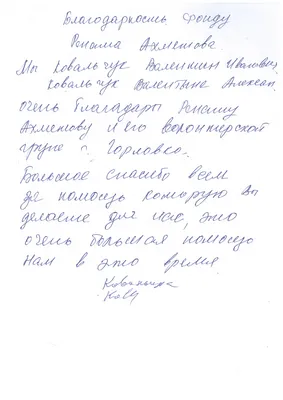 Благодарность фонду
Рената Ахметова
Мы Ковальчук Валентин Иванович
Ковальчук Валентине Алексан
очень благадары Ренату
Ахметову и его волонтерской
групе г. Горловка.
Большое спасибо всем
за помощь которую вы
делаете для нас, это
очень большая помощь
нам в это время